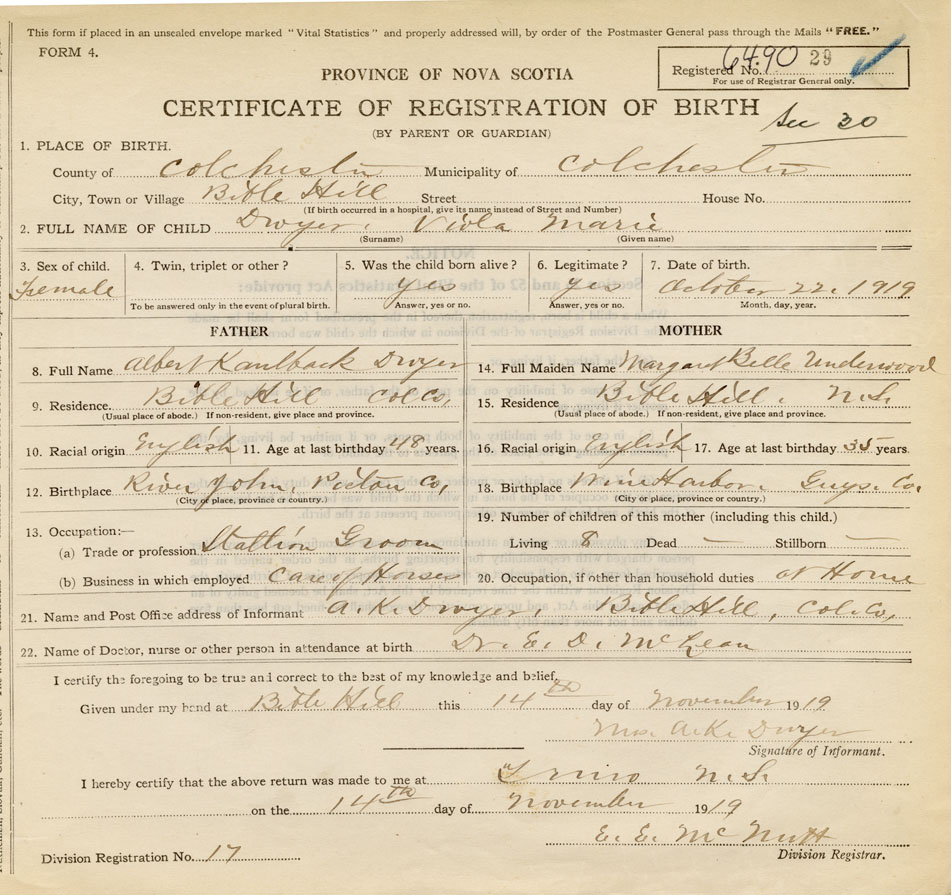 This form if placed in an unsealed envelope marked "Vital Statistics" and properly addressed will, by order of the Postmaster General pass through the Mails "FREE."
FORM 4.
Registered No. 6490 29
For use of Registrar General only.
PROVINCE OF NOVA SCOTIA
CERTIFICATE OF REGISTRATION OF BIRTH
(BY PARENT OR GUARDIAN)
30
1. PLACE OF BIRTH.
County of Colchester Municipality of Colchester
City, Town or Village Bible Hill Street House No.
(If birth occurred in a hospital, give its name instead of Street and Number)
2. FULL NAME OF CHILD Dwyer. Viola Marie
(Surname) (Given name)
3. Sex of child. 4. Twin, triplet or other? 5. Was the child born alive? 6. Legitimate? 7. Date of birth.
Female yes yes October 22. 1919
To be answered only in the event of plural birth. Answer, yes or no. Answer, yes or no. Month, day, year.
FATHER MOTHER
8. Full Name Albert Kaulback Dwyer 14. Full Maiden Name Margaret Belle Underwood
9. Residence. Bible Hill Col Co, 15. Residence Bible Hill. N.S.
(Usual place of abode.) If non-resident, give place and province. (Usual place of abode.) If non-resident, give place and province.
10. Racial origin English 11. Age at last birthday 48 years. 16. Racial origin English 17. Age at last birthday 35 years.
12. Birthplace River John, Pictou Co, 18. Birthplace Wine Harbor. Guys. Co.
(City or place, province or country.) (City or place, province or country.)
13. Occupation:— 19. Number of children of this mother (including this child.)
(a) Trade or profession Stallion Groom Living 8 Dead — Stillborn —
(b) Business in which employed Care of Horses 20. Occupation, if other than household duties at Home
21. Name and Post Office address of Informant A. K. Dwyer, Bible Hill, Col. Co,
22. Name of Doctor, nurse or other person in attendance at birth Dr. E. D. McLean
I certify the foregoing to be true and correct to the best of my knowledge and belief.
Given under my hand at Bible Hill this 14th day of November 1919
Mrs. A. K. Dwyer
Signature of Informant.
I hereby certify that the above return was made to me at Truro N.S.
on the 14th day of November 1919
E. E. McNutt
Division Registration No. 17 Division Registrar.